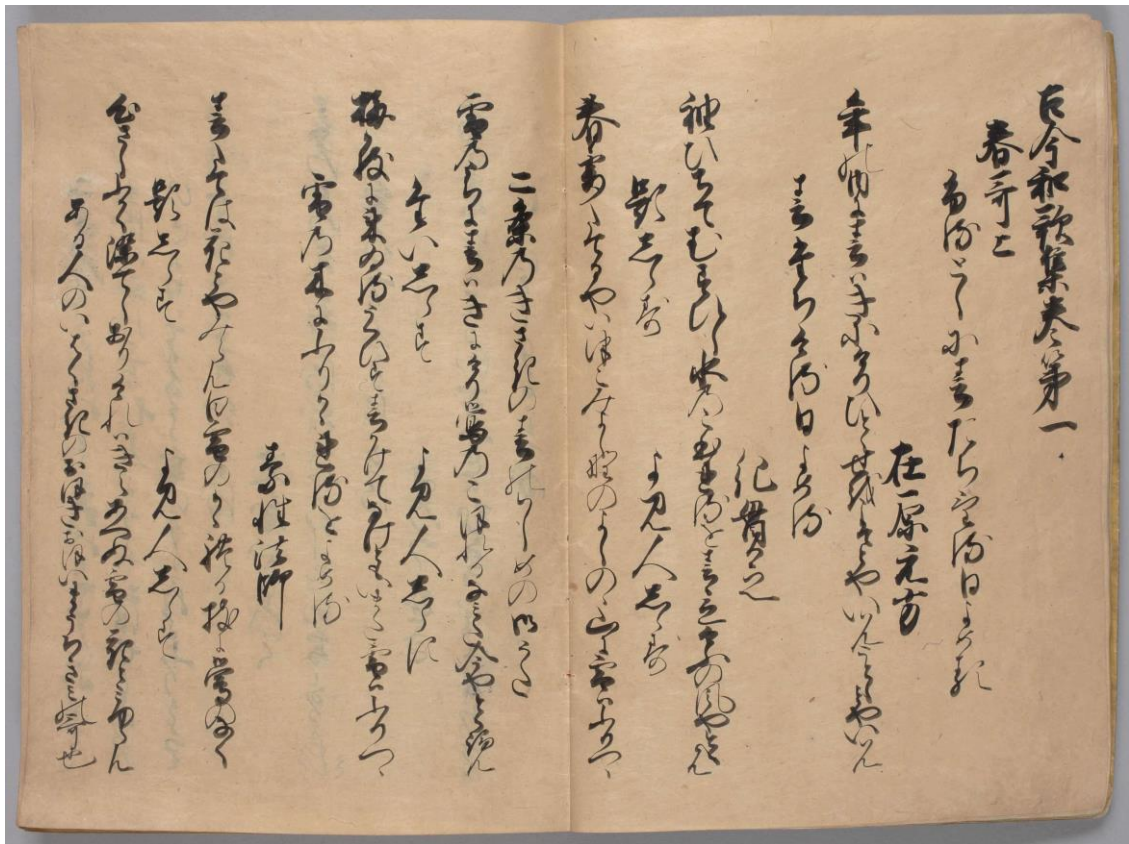 古今和歌集巻第一
春哥上
ふるとしに春たちける日よめる
在原元方
年の内に春はきにけりひとゝせをこそとやいはんことしとやいはん
春たちける日よめる
紀貫之
袖ひちてむすひし水のこほれるを春立けふの風やとくらん
題しらす
よみ人しらす
春霞たてるやいつこみよしのゝよしのゝ山に雪はふりつゝ
二条のきさきの春のはしめの御うた
雪のうちに春はきにけり鶯のこほれるなみた今やとくらん
題しらす
よみ人しらす
梅かえにきゐるうくひす春かけてなけともいまた雪はふりつゝ
雪の木にふりかゝれるをよめる
素性法師
春たては花とやみらん白雪のかゝれる枝に鶯のなく
題しらす
よみ人しらす
心さしふかく染てしおりけれはきえあへぬ雪の花とみゆらん
ある人のいはくさきのおほきおほいまうちきみの哥也